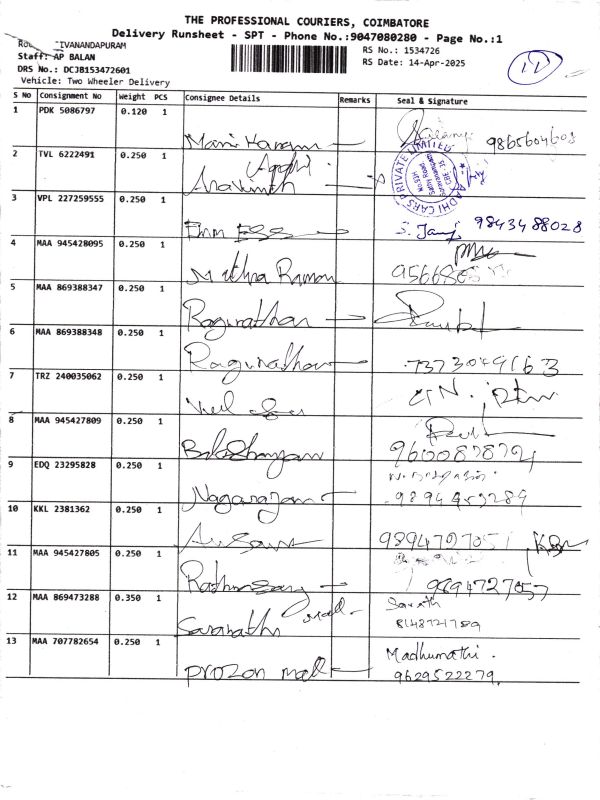 THE PROFESSIONAL COURIERS, COIMBATORE
Delivery Runsheet - SPT - Phone No.:9047080280 - Page No.:1
IVANANDAPURAM
Staff: AP BALAN
DRS No.: DCJB153472601
Vehicle: Two Wheeler Delivery
RS No.: 1534726
RS Date: 14-Apr-2025
11
S No Consignment No Weight PCS Consignee Details Remarks Seal & Signature
1 PDK 5086797 0.120 1
9865604608
2 TVL 6222491 0.250 1
Aadhi
AADHI CARS PRIVATE LIMITED
3 VPL 227259555 0.250 1
S. Jany 9843488028
4 MAA 945428095 0.250 1
Mithra Raman
5 MAA 869388347 0.250 1
Ragunathan
6 MAA 869388348 0.250 1
Ragunathan 7373049163
7 TRZ 240035062 0.250 1
8 MAA 945427809 0.250 1
9600878724
9 EDQ 23295828 0.250 1
Nagarajan 9894453289
10 KKL 2381362 0.250 1
9894707057
11 MAA 945427805 0.250 1
9894727057
12 MAA 869473288 0.350 1
mall Sarath
8148721789
13 MAA 707782654 0.250 1
Madhumathi.
Prozon mall 9629522279.